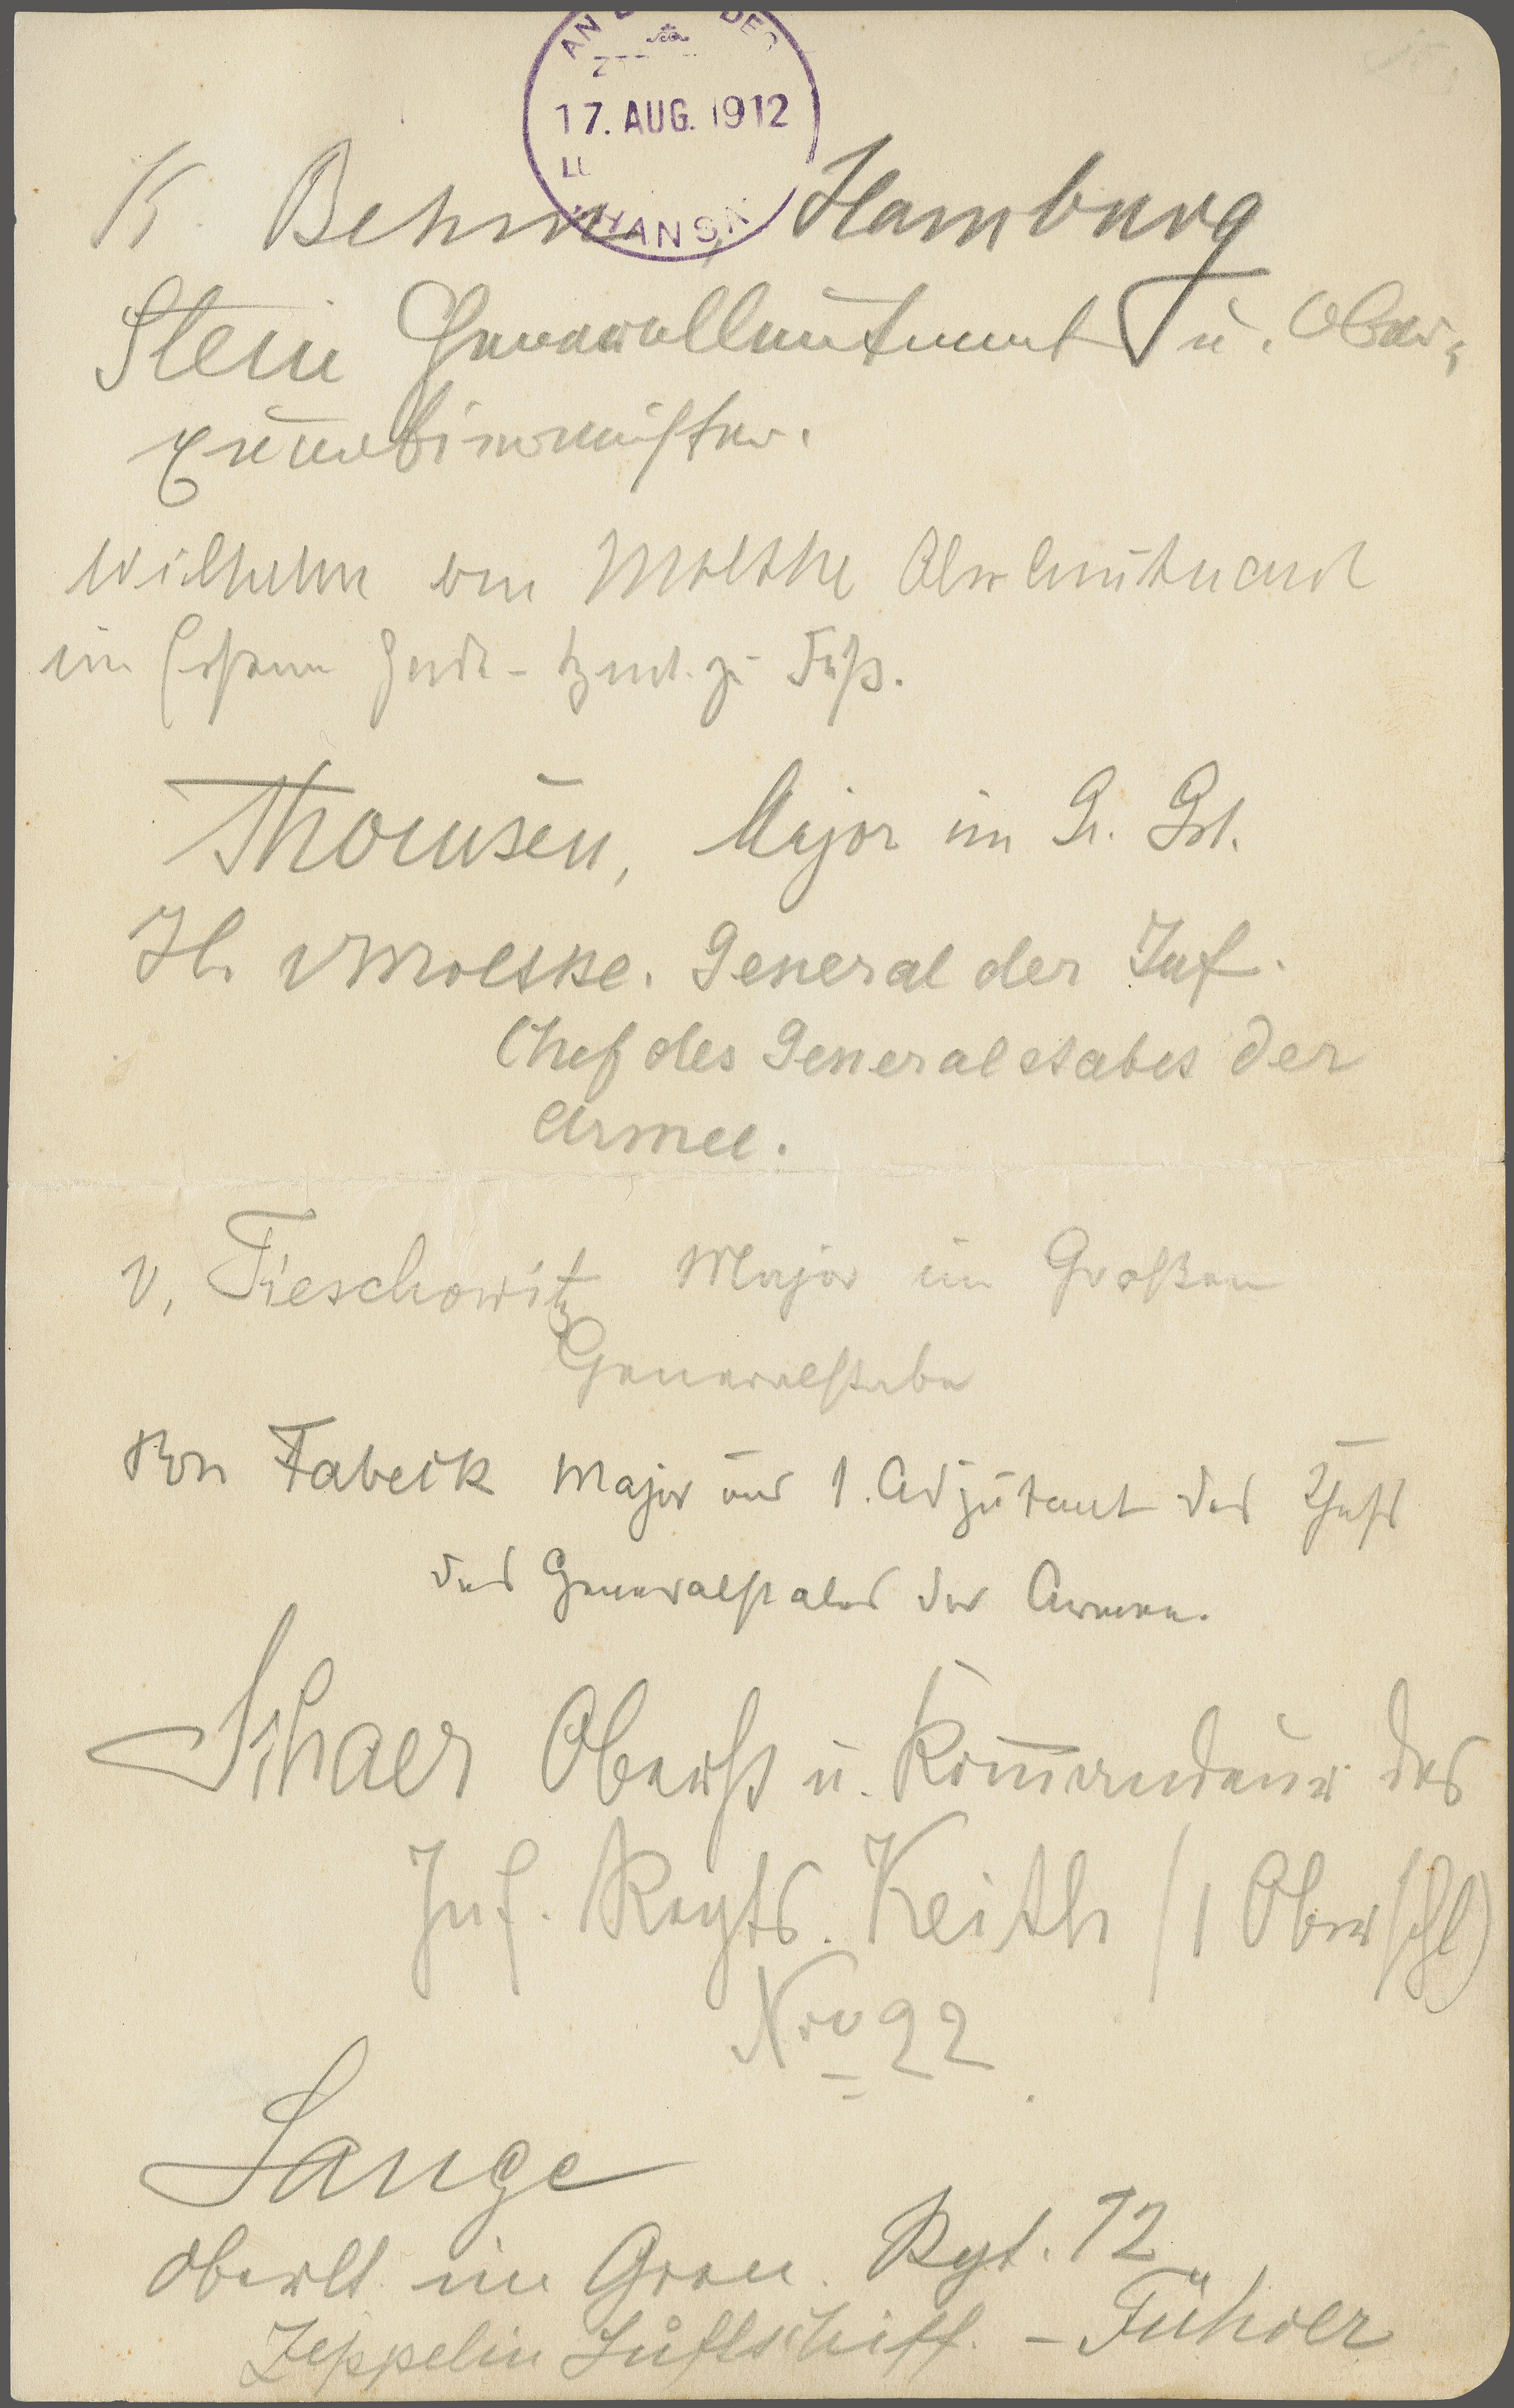 AN DES
17. AUG. 1912
HANSA
K. Behm, Hamburg
Stein Generalleutnant u. Ober-
quartiermeister.
Wilhelm von Moltke Oberleutnant
im Ersten Garde-Regt. zu Fuß.
Thomsen, Major im Gr. Gst.
H. v Moltke. General der Inf.
Chef des Generalstabes der
Armee.
v. Tieschowitz Major im Großen
Generalstabe
von Fabeck Major und 1. Adjutant des Chefs
des Generalstabes der Armee.
Schaer Oberst u. Kommandeur des
Inf. Regts. Keith (1 Oberschl)
Nro 22
Lange
Oberlt. im Gren. Rgt. 12
Zeppelin Luftschiff. - Führer